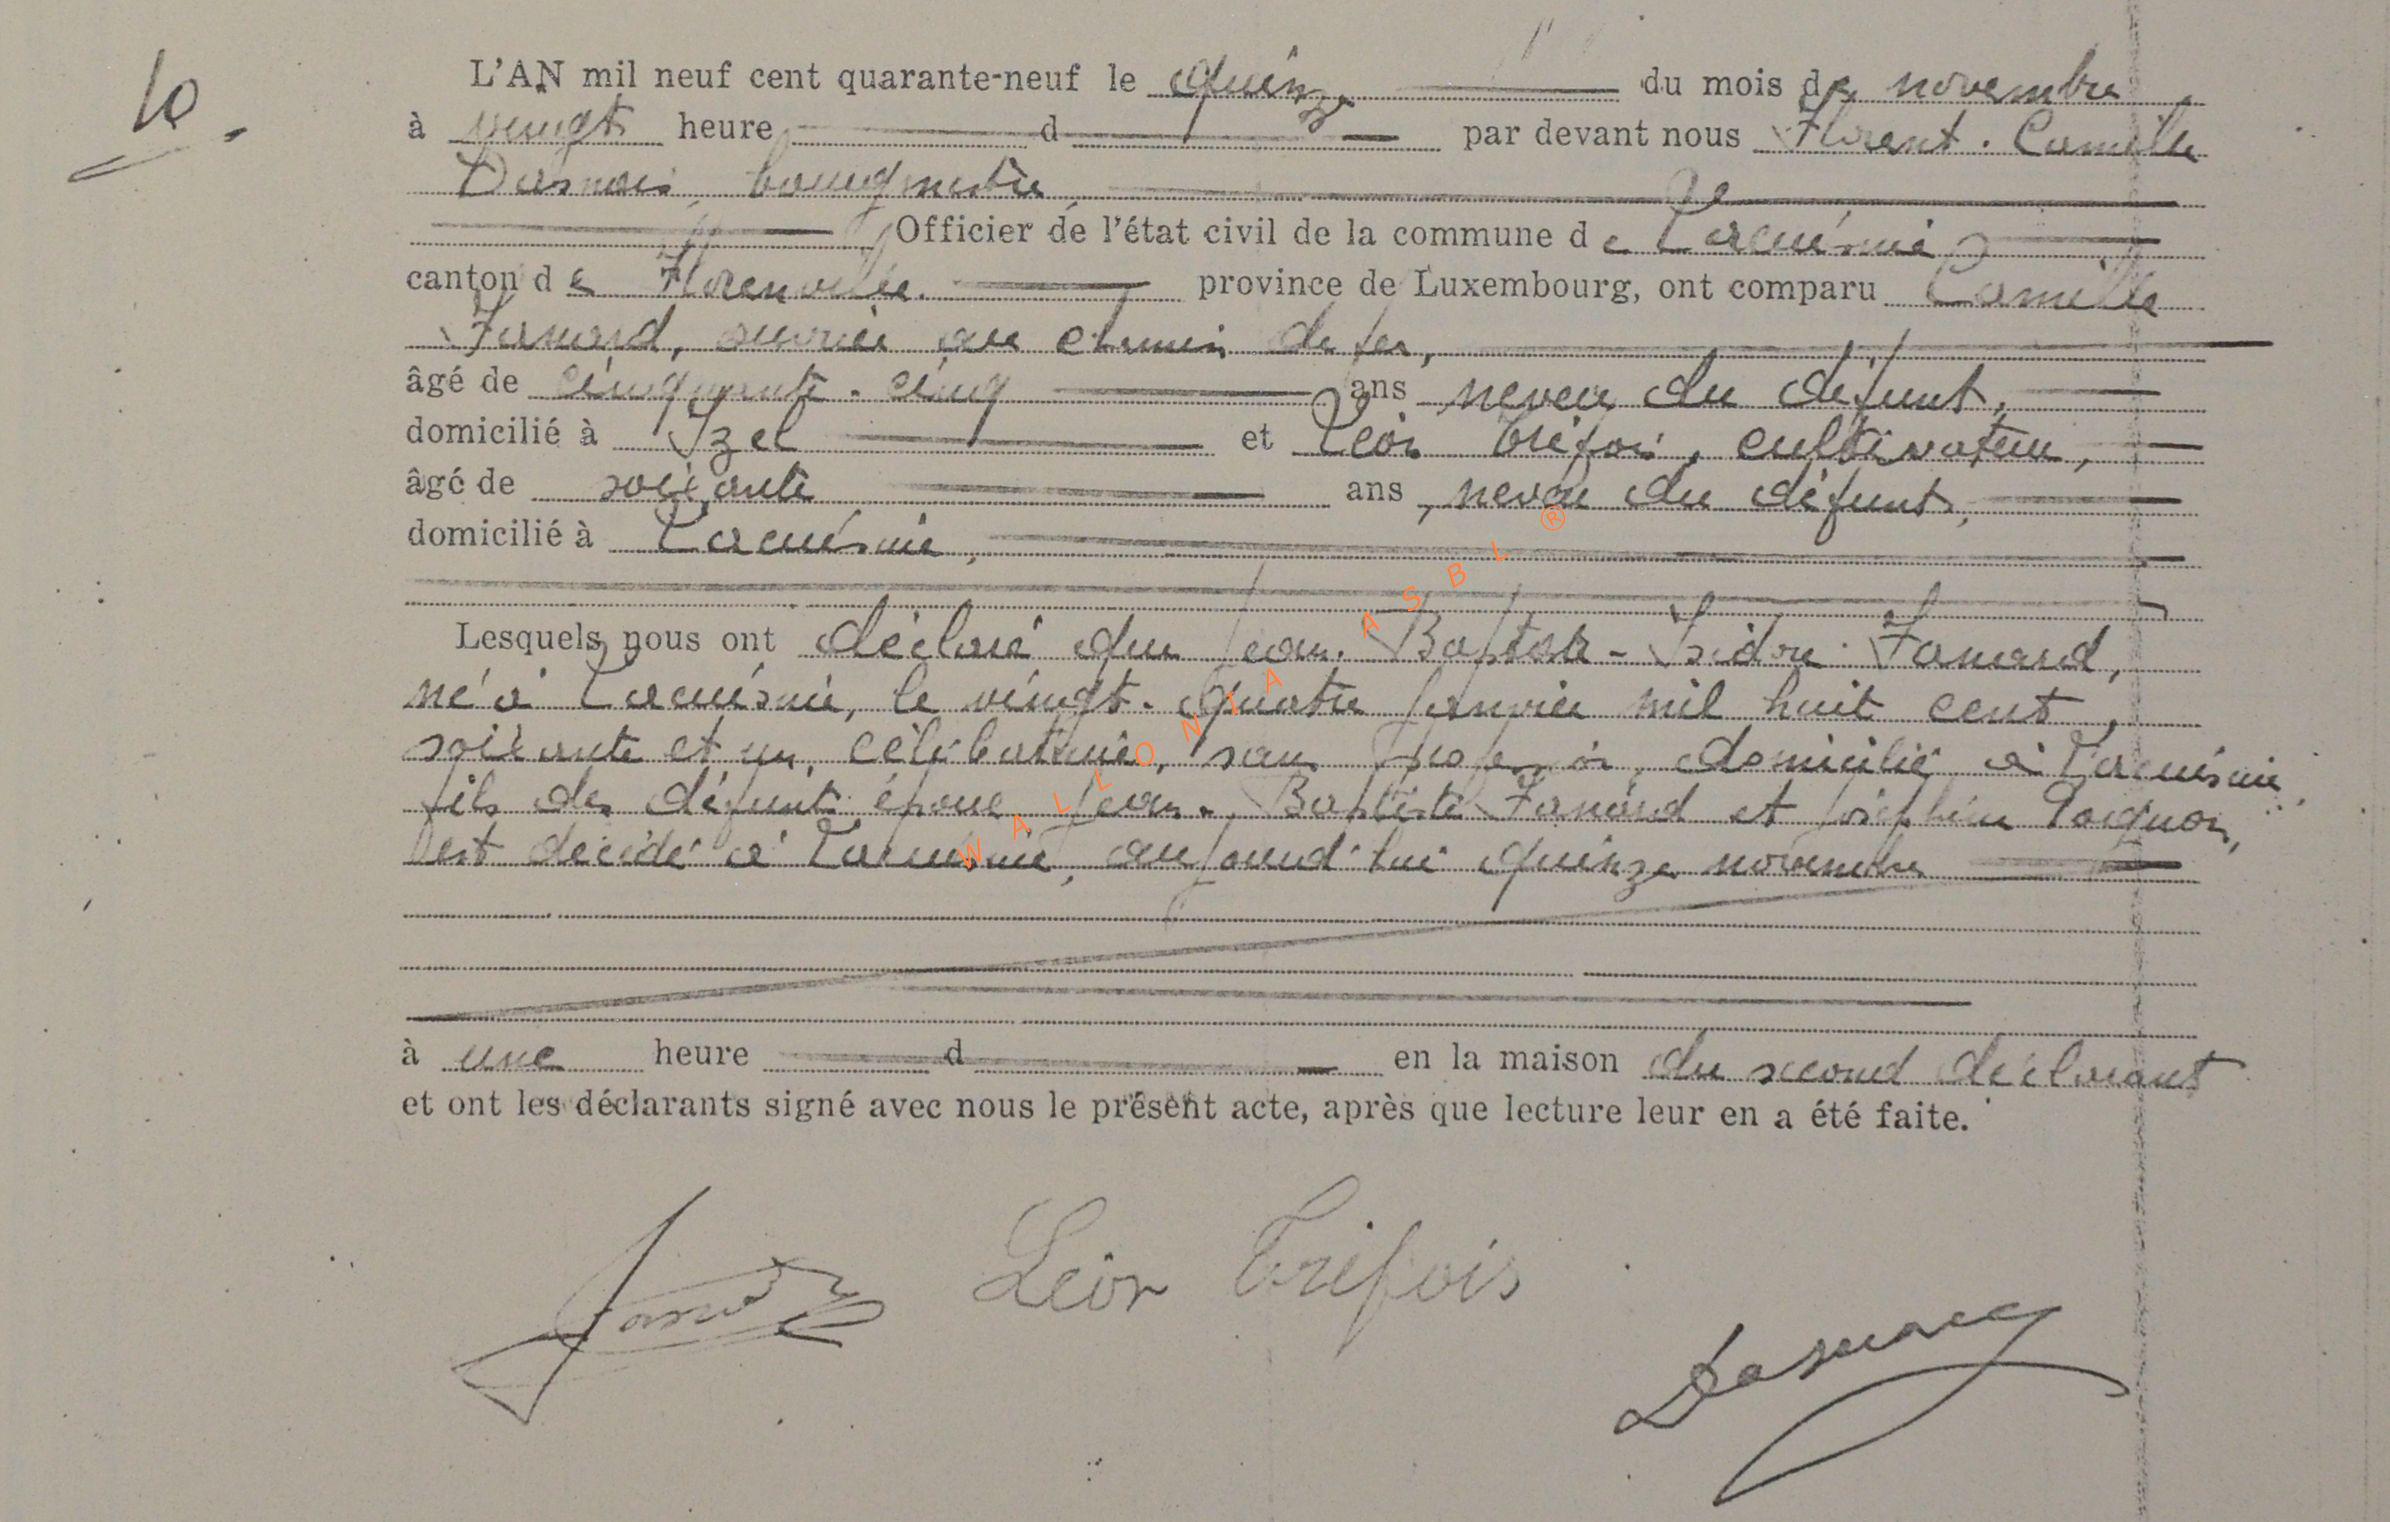 10.
L'AN mil neuf cent quarante-neuf le quinze du mois de novembre
à vingt heure d par devant nous Florent-Camille
Dasnois, bourgmestre
Officier de l'état civil de la commune de Lacuisine
canton de Florenville. province de Luxembourg, ont comparu Camille
Fanard, ouvrier au chemin de fer,
âgé de cinquante-cinq ans neveu du défunt,
domicilié à Izel et Léon Tréfois, cultivateur,
âgé de soixante ans, neveu du défunt,
domicilié à Lacuisine,
Lesquels nous ont déclaré que Jean-Baptiste-Isidore Fanard,
né à Lacuisine, le vingt-quatre janvier mil huit cent
soixante et un, célibataire, sans profession, domicilié à Lacuisine,
fils des défunts époux Jean-Baptiste Fanard et Joséphine
est décédé à Lacuisine, aujourd'hui quinze novembre
à une heure d en la maison du second déclarant
et ont les déclarants signé avec nous le présent acte, après que lecture leur en a été faite.
Fanard Léon Tréfois
WALLONIA ASBL ®